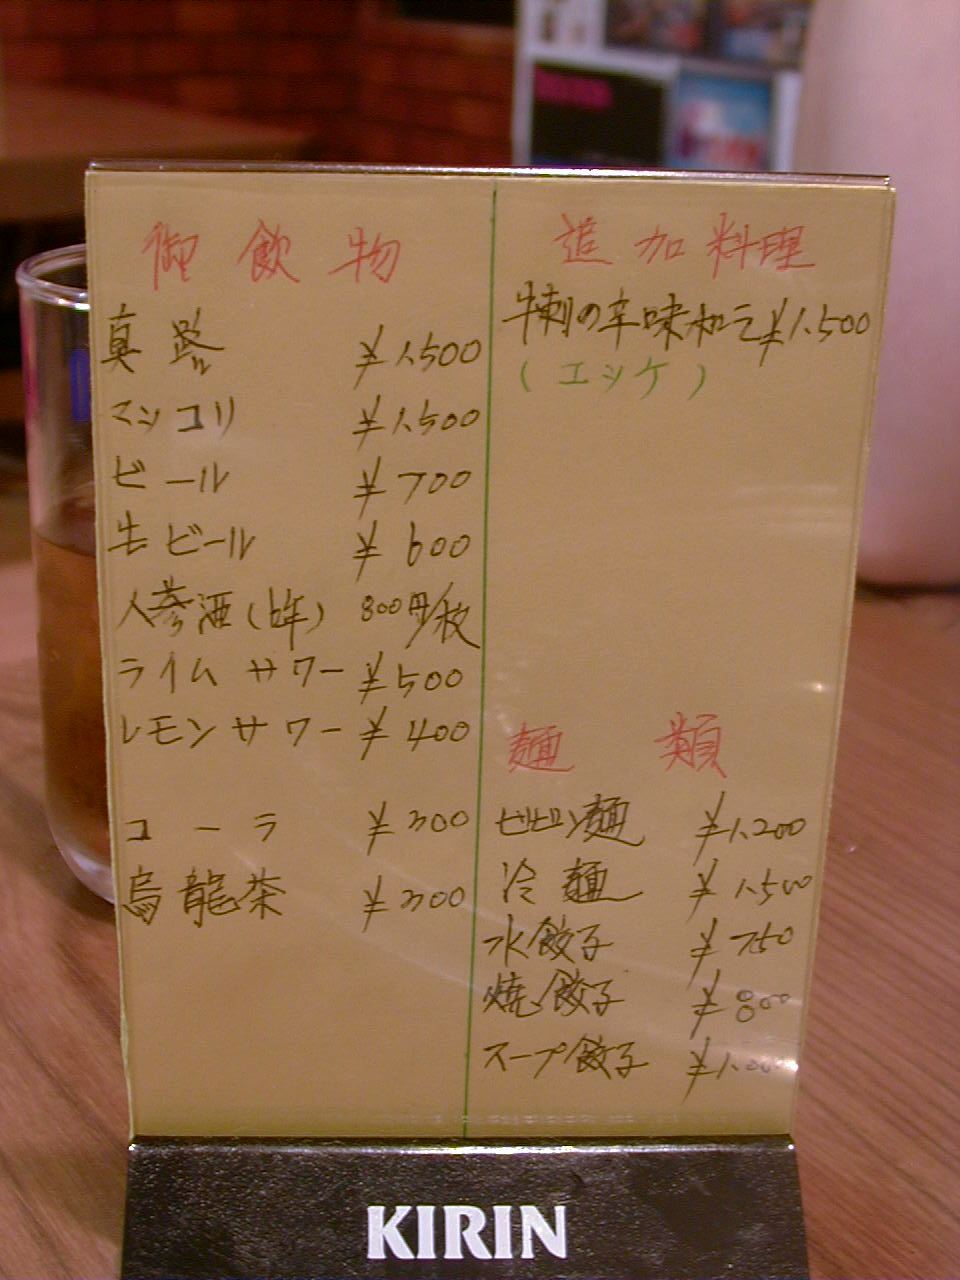 御飲物
真露 ¥1,500
マッコリ ¥1,500
ビール ¥700
生ビール ¥600
人参酒 800円/枚
ライムサワー ¥500
レモンサワー ¥400
コーラ ¥300
烏龍茶 ¥300
追加料理
牛刺の辛味和え ¥1,500
(エッケ)
麺類
ビビン麺 ¥1,200
冷麺 ¥1,500
水餃子 ¥750
焼餃子 ¥800
スープ餃子 ¥1,000
KIRIN